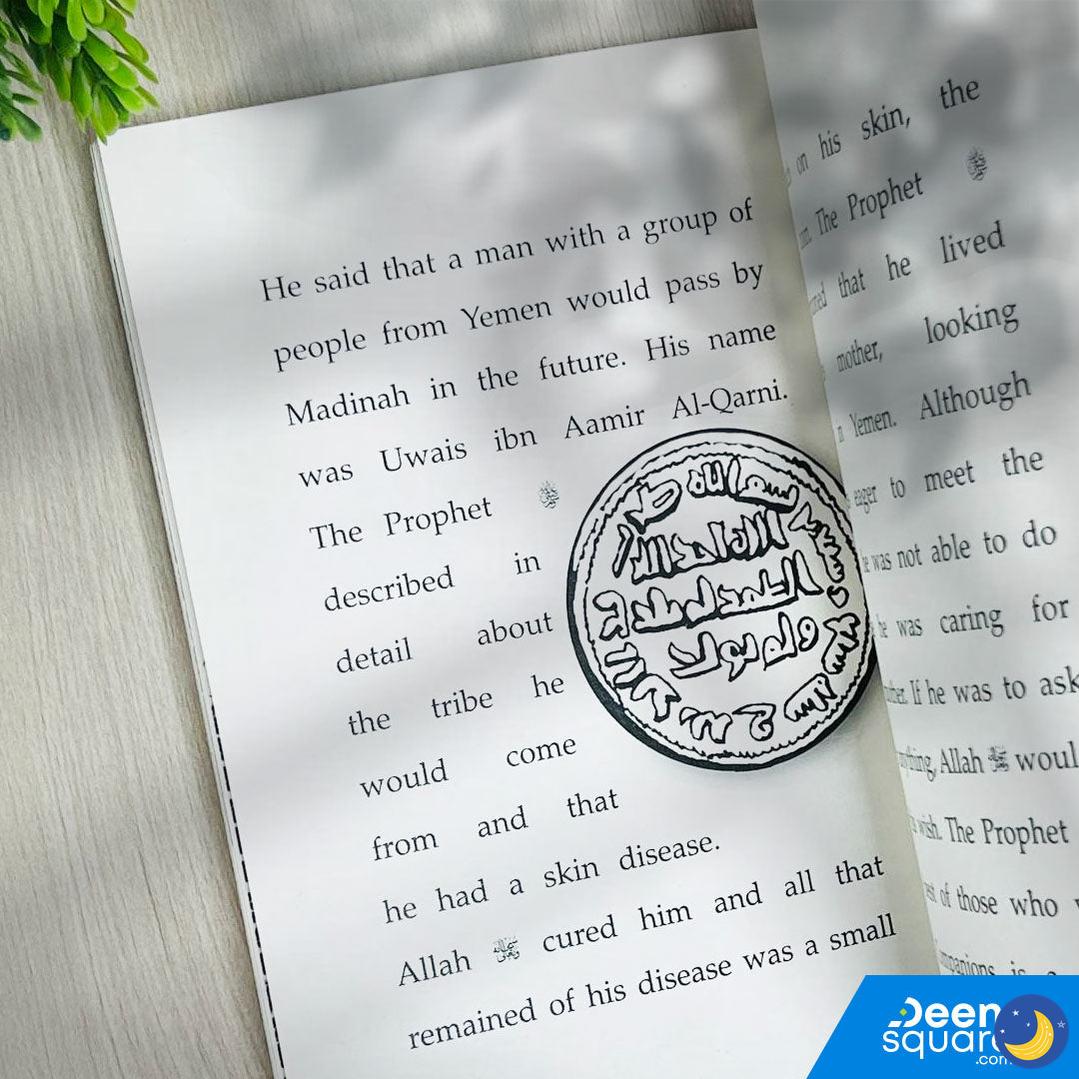 He said that a man with a group of
people from Yemen would pass by
Madinah in the future. His name
was Uwais ibn Aamir Al-Qarni.
The Prophet ﷺ
described in
detail about
the tribe he
would come
from and that
he had a skin disease.
Allah ﷻ cured him and all that
remained of his disease was a small
on his skin, the
The Prophet ﷺ
that he lived
mother, looking
Yemen. Although
eager to meet the
was not able to do
was caring for
If he was to ask
Allah ﷻ
The Prophet
of those who
Deen
square
.com